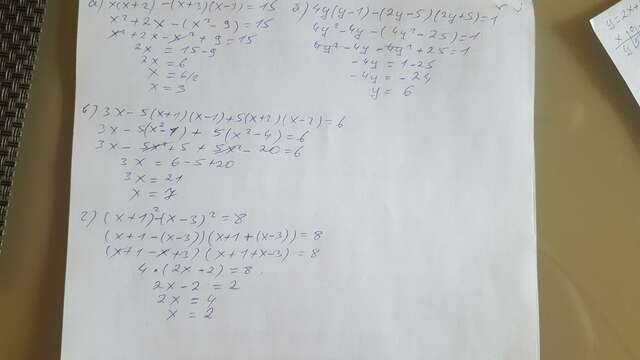 а) x(x+2) -(x+3)(x-3)= 15
x²+2x-(x²-9)=15
x²+2x-x²+9=15
2x = 15-9
2x=6
x = 6/2
x = 3
б) 4y(y-1)-(2y-5)(2y+5)=1
4y²-4y-(4y²-25)=1
4y²-4y-4y²+25=1
-4y=1-25
-4y = -24
y = 6
в) 3x-5(x+1)(x-1)+5(x+2)(x-2)=6
3x-5(x²-1)+5(x²-4)=6
3x-5x²+5+5x²-20=6
3x = 6-5+20
3x=21
x = 7
г) (x+1)²-(x-3)²=8
(x+1-(x-3))(x+1+(x-3))=8
(x+1-x+3)(x+1+x-3)=8
4·(2x-2)=8
2x-2=2
2x = 4
x = 2